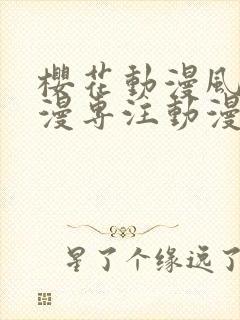 櫻花動漫風
漫專注動漫
星了个缘远了